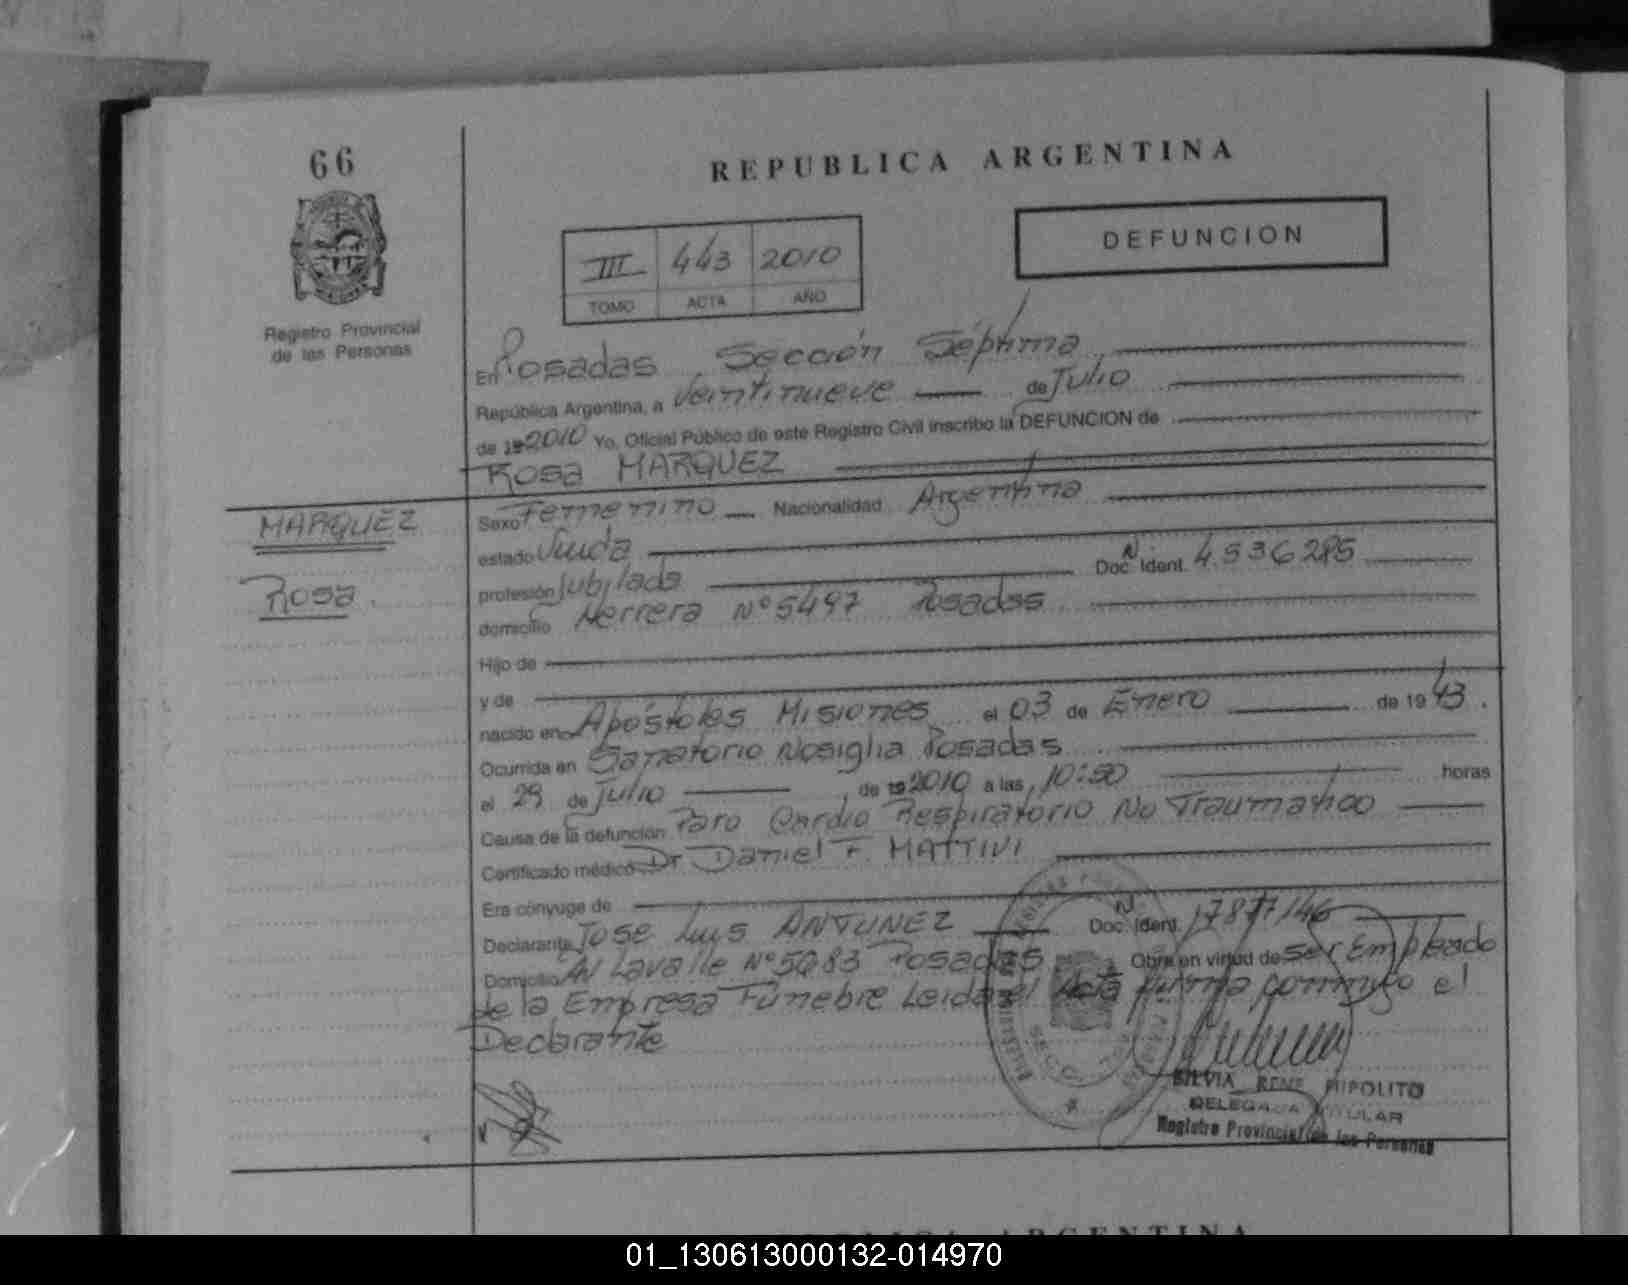 66
REPUBLICA ARGENTINA
III 443 2010
TOMO ACTA AÑO
DEFUNCION
Registro Provincial
de las Personas
En Posadas, Sección Séptima
República Argentina, a Veintinueve de Julio
de 19 2010 Yo, Oficial Público de este Registro Civil inscribo la DEFUNCION de
Rosa MARQUEZ
MARQUEZ
Rosa
Sexo Femenino Nacionalidad Argentina
estado Viuda
profesión Jubilada Doc. Ident. N 4.536285
domicilio Herrera Nº 5497 Posadas
Hijo de
y de
nacido en Apóstoles Misiones el 03 de Enero de 19 43.
Ocurrida en Sanatorio Nosiglia Posadas
el 29 de Julio de 19 2010 a las 10:50 horas
Causa de la defunción Paro Cardio Respiratorio No Traumatico
Certificado médico Dr Daniel F. MATTIVI
Era cónyuge de
Declarante Jose Luis ANTUNEZ Doc. Ident. N 17877146
Domicilio AV Lavalle Nº 5083 Posadas Obra en virtud de ser Empleado
de la Empresa Fúnebre Leida el Acta firma conmigo el
Declarante
SILVIA RENE HIPOLITO
DELEGADA TITULAR
Registro Provincial de las Personas
REPUBLICA ARGENTINA
01_130613000132-014970